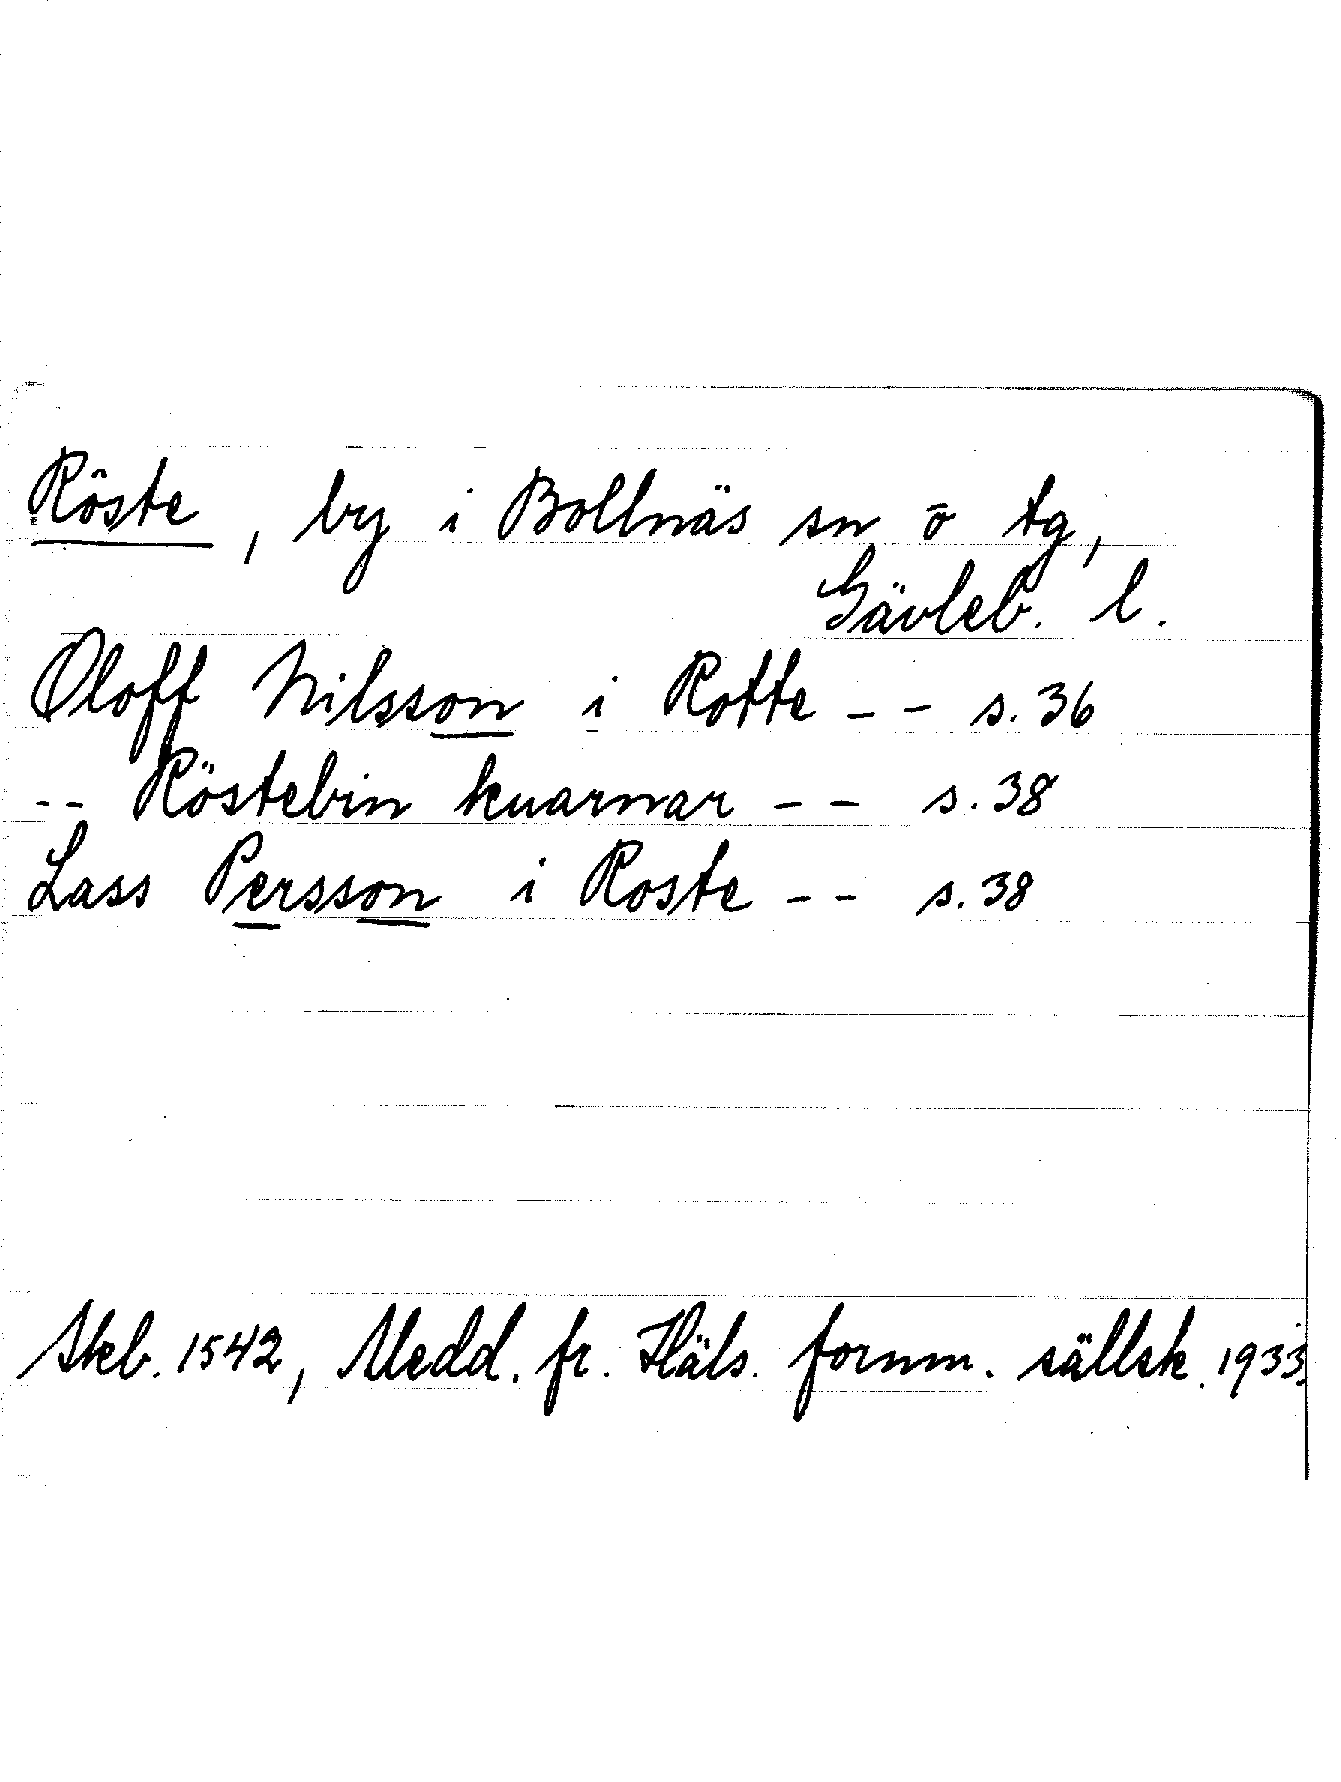 Röste, by i Bollnäs sn o tg,
Gävleb. l.
Oloff Nilsson i Rotte -- s. 36
-- Röstebin kuarnar -- s. 38
Lass Persson i Roste -- s. 38
Skeb. 1542, Medd. fr. Häls. fornm. sällsk. 1933.